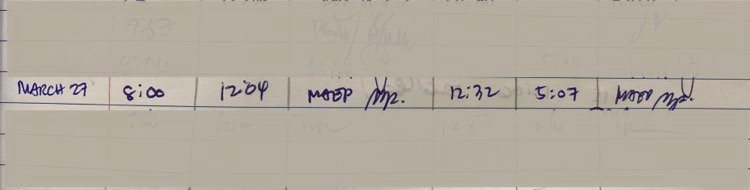 MARCH 27 8:00 12:04 MAEP 12:32 5:07 MAEP